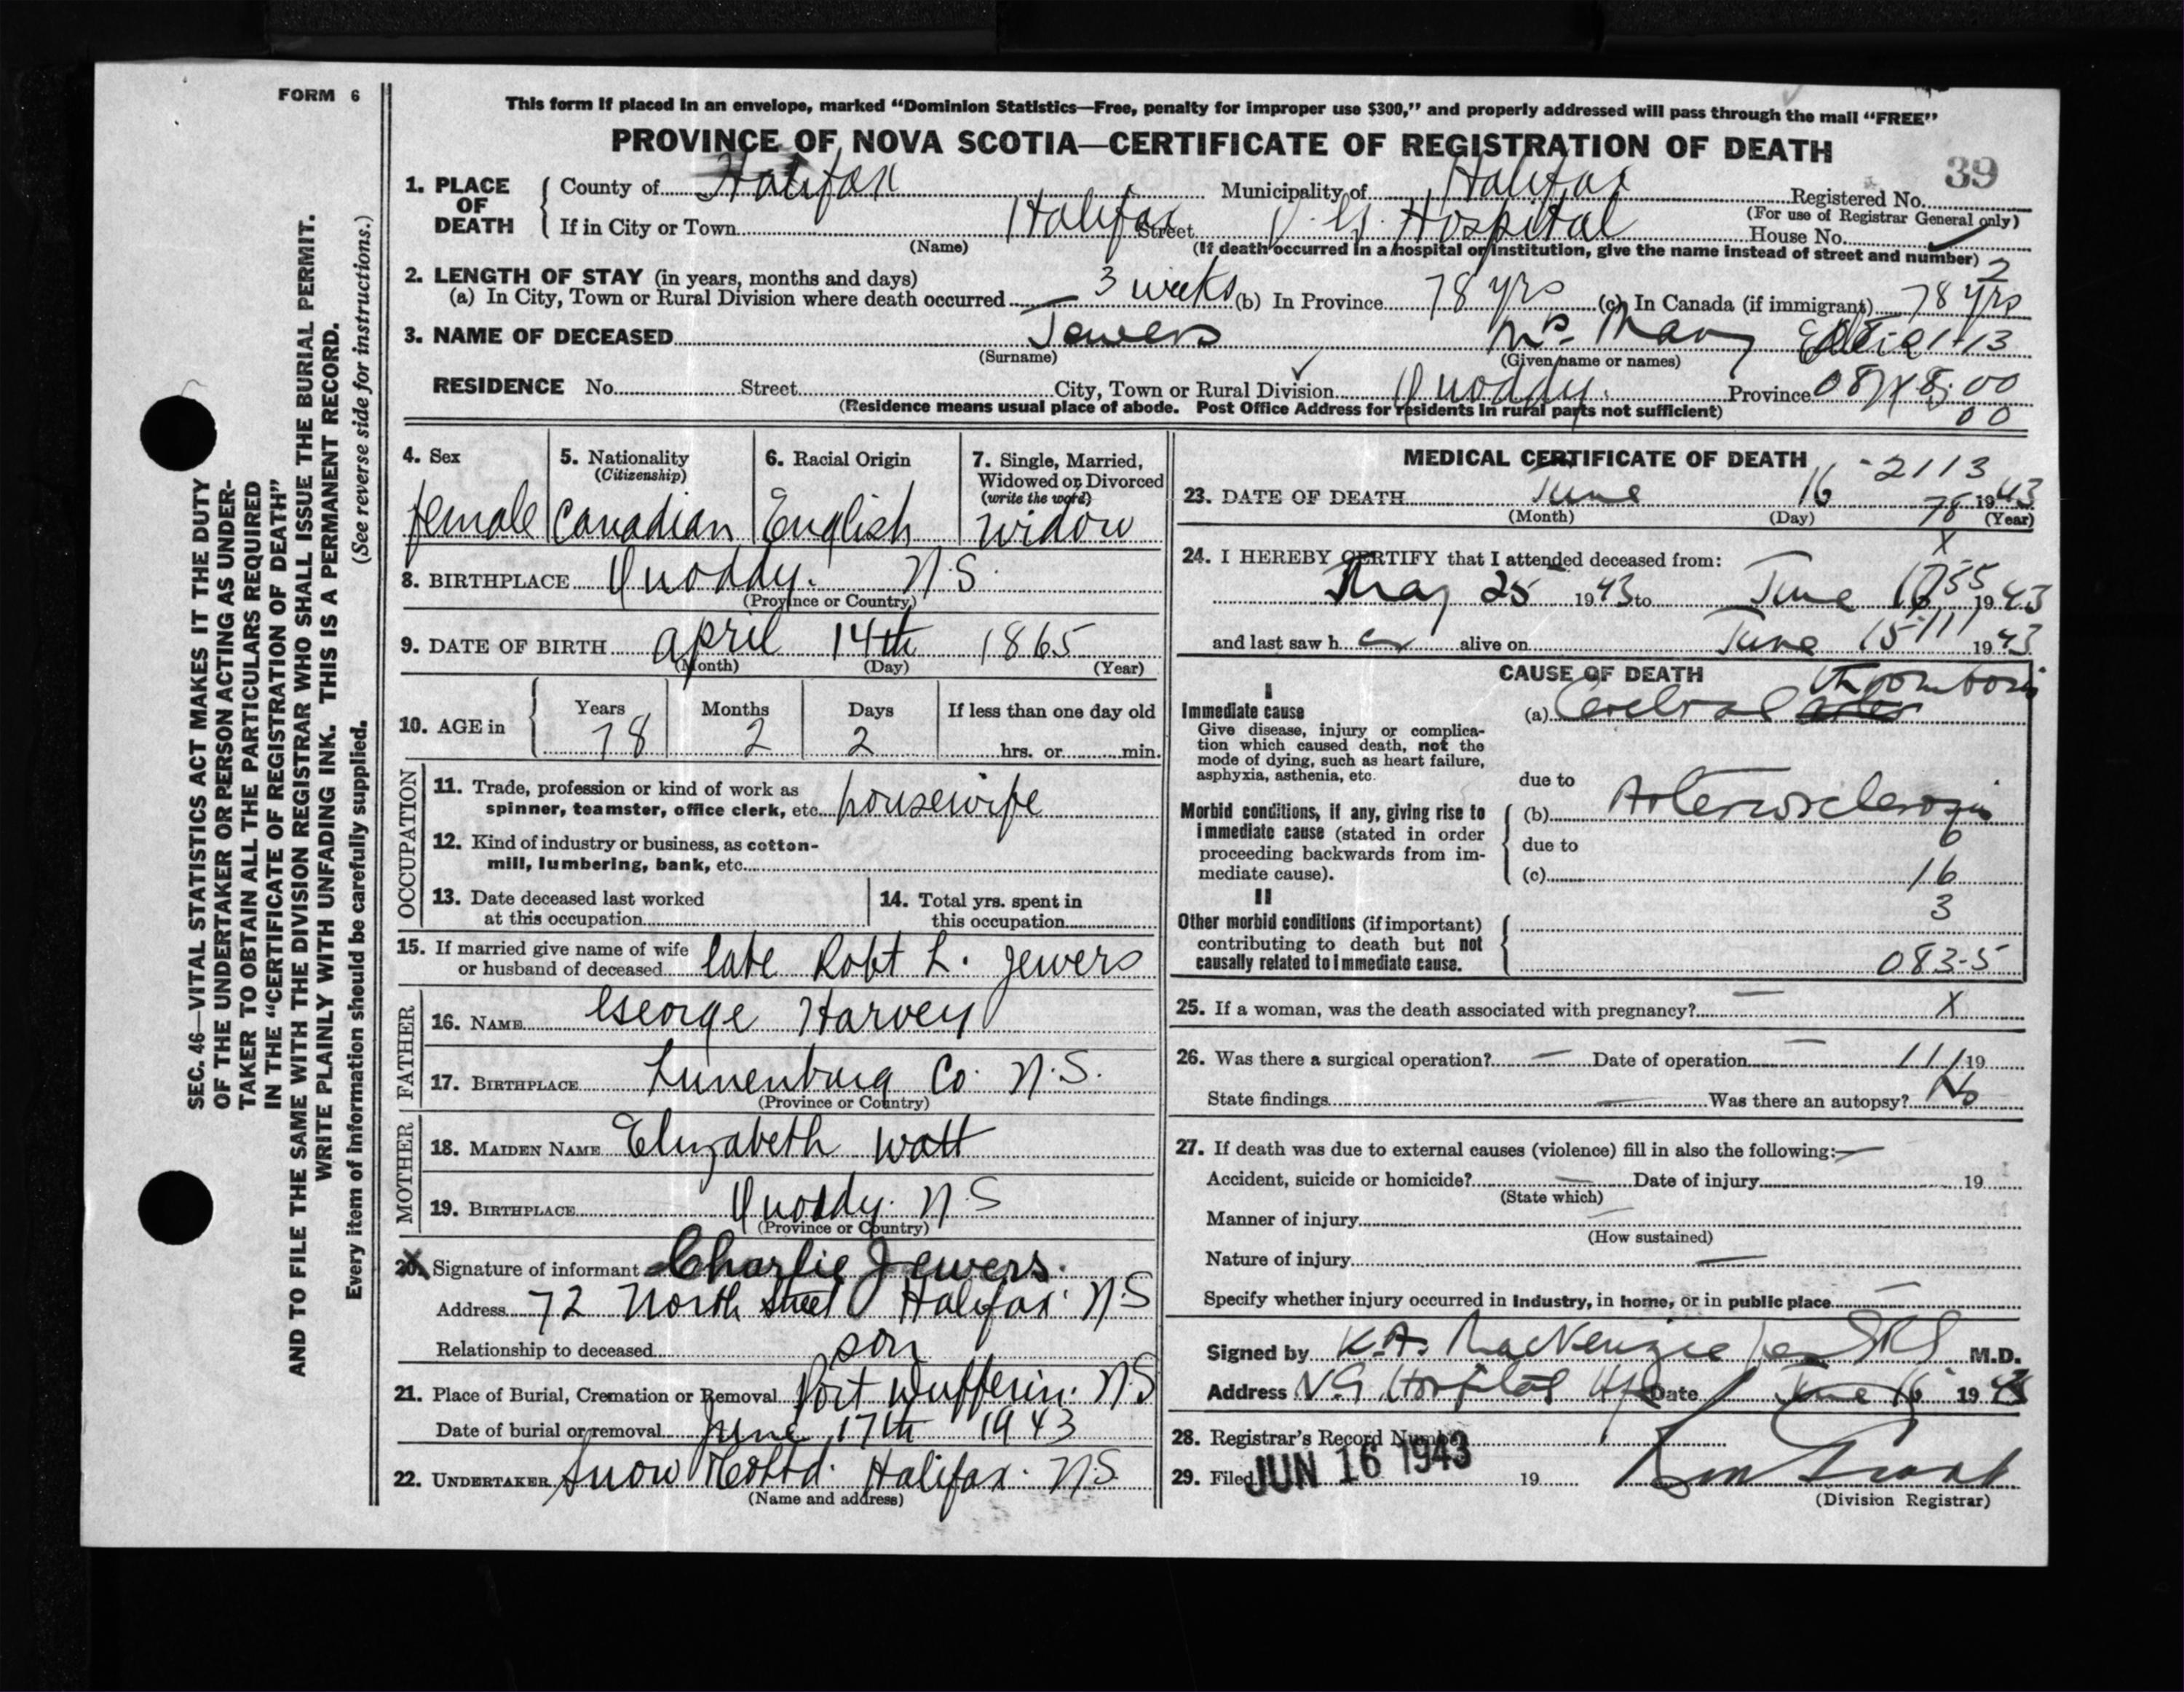 FORM 6
This form if placed in an envelope, marked “Dominion Statistics—Free, penalty for improper use $300,” and properly addressed will pass through the mail “FREE”
PROVINCE OF NOVA SCOTIA—CERTIFICATE OF REGISTRATION OF DEATH
39
1. PLACE OF DEATH
County of Halifax Municipality of Halifax Registered No.
(For use of Registrar General only)
If in City or Town Halifax Street V. G. Hospital House No.
(Name) (If death occurred in a hospital or institution, give the name instead of street and number)
2
2. LENGTH OF STAY (in years, months and days)
(a) In City, Town or Rural Division where death occurred 3 weeks (b) In Province 78 yrs (c) In Canada (if immigrant) 78 yrs
3. NAME OF DECEASED Jewers Mrs. Mary
(Surname) (Given name or names)
RESIDENCE No. Street City, Town or Rural Division Quoddy. Province
(Residence means usual place of abode. Post Office Address for residents in rural parts not sufficient)
00
4. Sex
female
5. Nationality
(Citizenship)
Canadian
6. Racial Origin
English
7. Single, Married,
Widowed or Divorced
(write the word)
widow
8. BIRTHPLACE Quoddy. N.S.
(Province or Country)
9. DATE OF BIRTH April 14th 1865
(Month) (Day) (Year)
10. AGE in
Years Months Days If less than one day old
78 2 2 hrs. or min.
OCCUPATION
11. Trade, profession or kind of work as
spinner, teamster, office clerk, etc. housewife
12. Kind of industry or business, as cotton-
mill, lumbering, bank, etc.
13. Date deceased last worked
at this occupation
14. Total yrs. spent in
this occupation
15. If married give name of wife
or husband of deceased late Robt L. Jewers
FATHER
16. NAME George Harvey
17. BIRTHPLACE Lunenburg Co. N.S.
(Province or Country)
MOTHER
18. MAIDEN NAME Elizabeth Watt
19. BIRTHPLACE Quoddy. N.S
(Province or Country)
20. Signature of informant Charlie Jewers.
Address 72 North Street Halifax. N.S
Relationship to deceased son
21. Place of Burial, Cremation or Removal Port Dufferin. N.S
Date of burial or removal June 17th 1943
22. UNDERTAKER Snow & Co Ltd. Halifax. N.S.
(Name and address)
MEDICAL CERTIFICATE OF DEATH
-2113
23. DATE OF DEATH June 16 1943
(Month) (Day) (Year)
78
X
24. I HEREBY CERTIFY that I attended deceased from:
May 25 1943 to June 16 1943
and last saw her alive on June 15 1943
CAUSE OF DEATH
I
Immediate cause
Give disease, injury or complica-
tion which caused death, not the
mode of dying, such as heart failure,
asphyxia, asthenia, etc.
(a) Cerebral thrombosis
due to
Morbid conditions, if any, giving rise to
immediate cause (stated in order
proceeding backwards from im-
mediate cause).
(b) Arteriosclerosis
6
due to
(c) 16
II
3
Other morbid conditions (if important)
contributing to death but not
causally related to immediate cause.
083-5
25. If a woman, was the death associated with pregnancy? — X
26. Was there a surgical operation? — Date of operation — 19
State findings — Was there an autopsy? No
27. If death was due to external causes (violence) fill in also the following:—
Accident, suicide or homicide? — Date of injury 19
(State which)
Manner of injury —
(How sustained)
Nature of injury —
Specify whether injury occurred in industry, in home, or in public place —
Signed by K.A. MacKenzie per M.D.
Address V.G Hospital Hfx Date June 16 1943
28. Registrar's Record Number
29. Filed JUN 16 1943 19
(Division Registrar)
SEC. 46—VITAL STATISTICS ACT MAKES IT THE DUTY
OF THE UNDERTAKER OR PERSON ACTING AS UNDER-
TAKER TO OBTAIN ALL THE PARTICULARS REQUIRED
IN THE “CERTIFICATE OF REGISTRATION OF DEATH”
AND TO FILE THE SAME WITH THE DIVISION REGISTRAR WHO SHALL ISSUE THE BURIAL PERMIT.
WRITE PLAINLY WITH UNFADING INK. THIS IS A PERMANENT RECORD.
Every item of information should be carefully supplied. (See reverse side for instructions.)